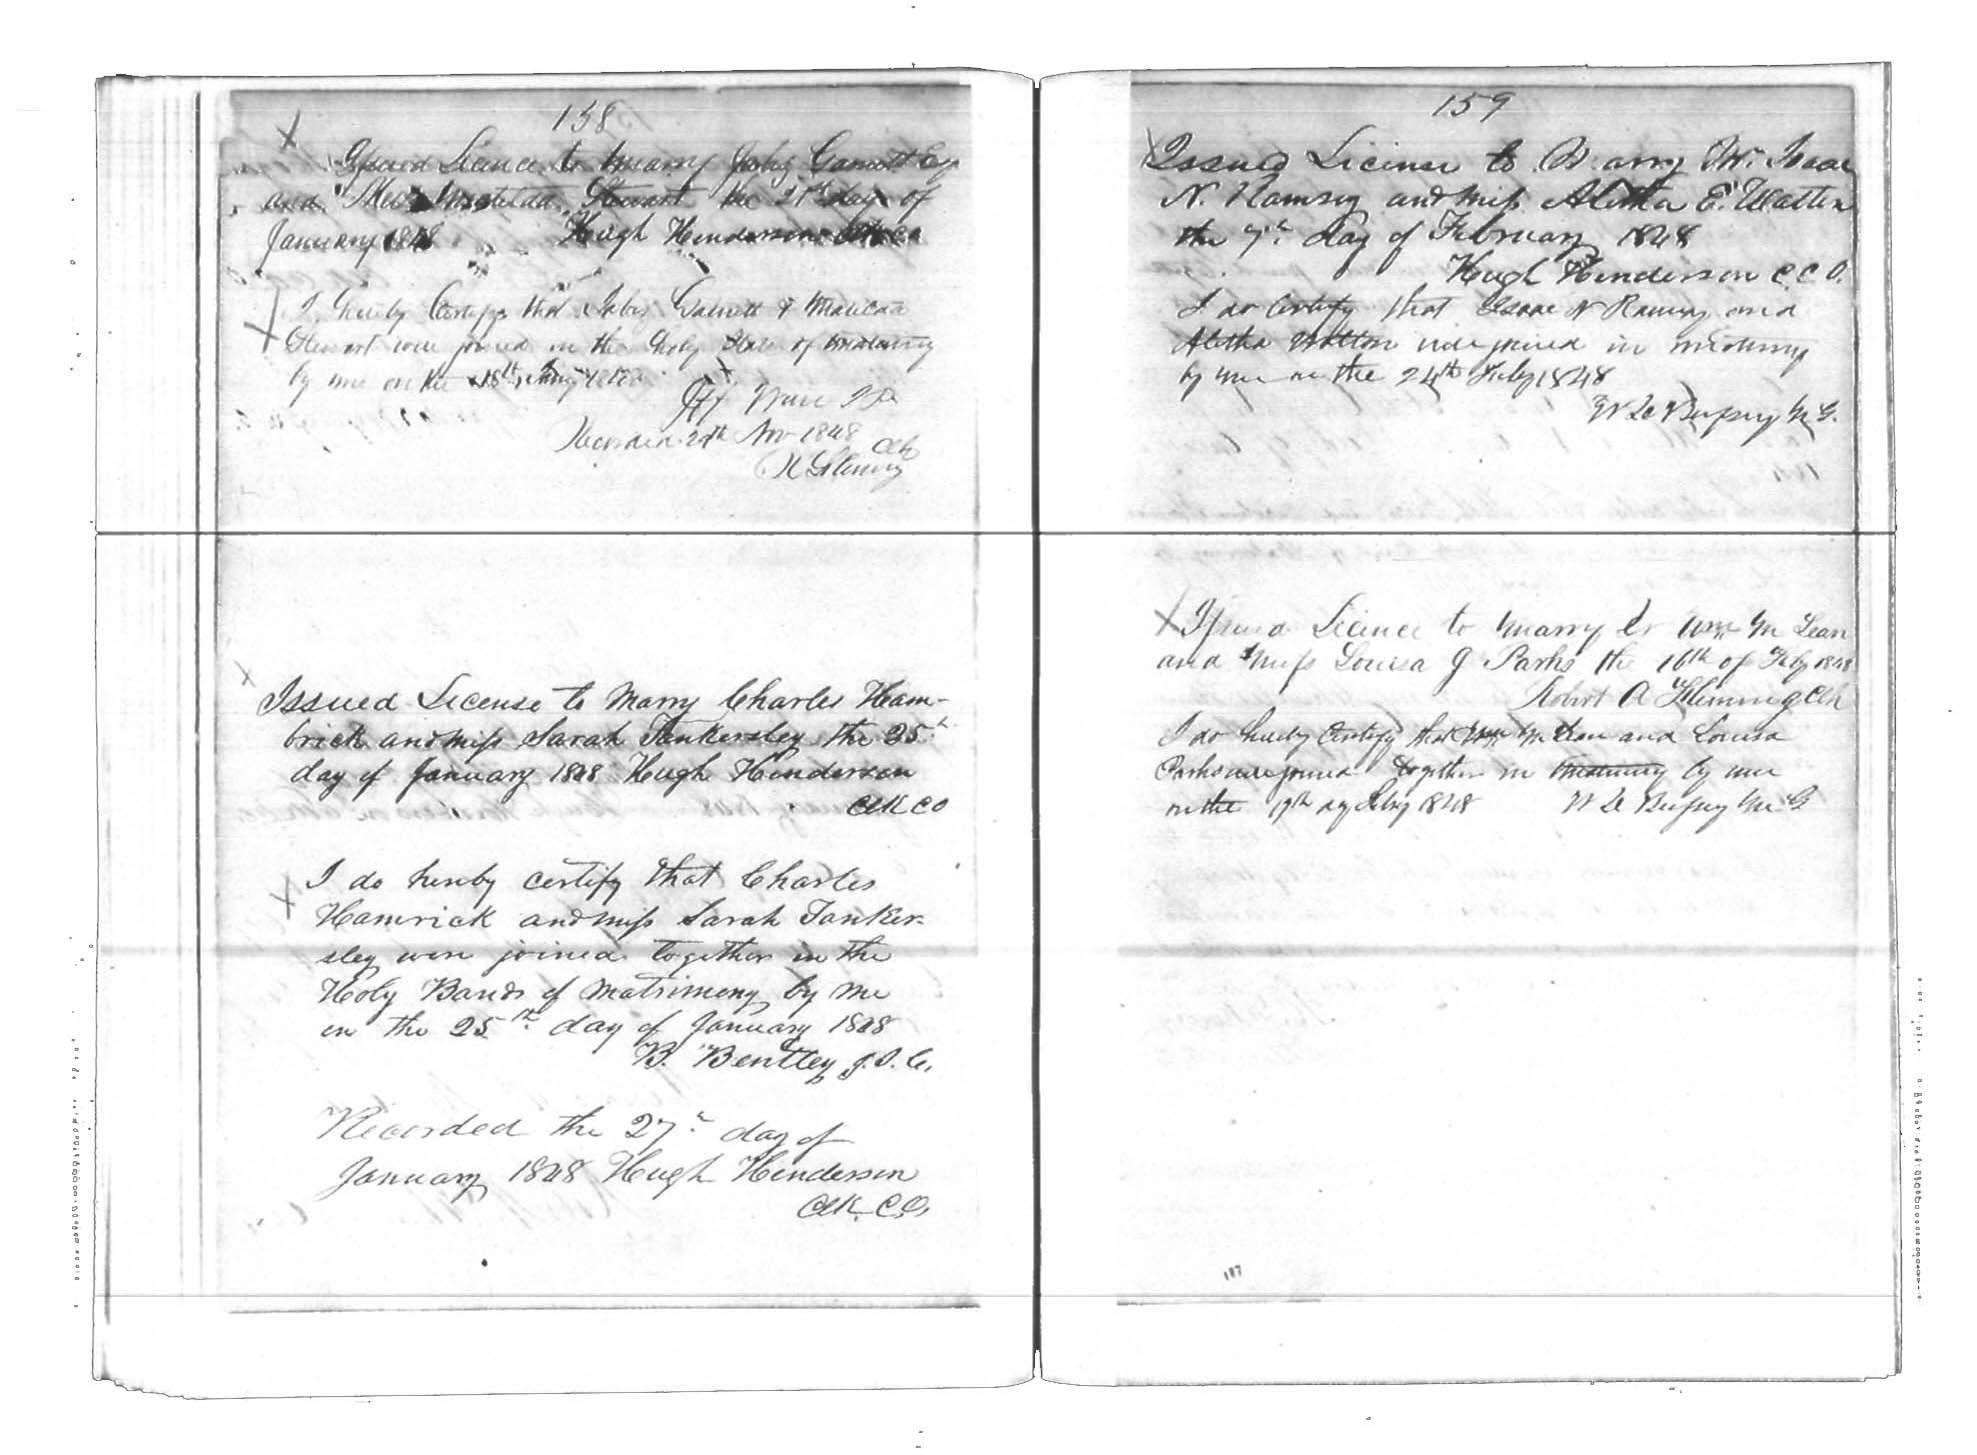 158
Issued License to Marry Jabez Garrett Esq
and Miss Matilda Stewart the 21st day of
January 1848 Hugh Henderson Clk CO
I hereby Certify that Jabez Garrett & Matilda
Stewart were joined in the Holy State of Matrimony
by me on the
J P
Recorded 24th Nov 1848
Clk
Issued License to Marry Charles Ham-
brick and miss Sarah Tankersley the 25th
day of January 1848 Hugh Henderson
Clk CO
I do hereby certify that Charles
Hamrick and miss Sarah Tanker-
sley were joined together in the
Holy Bands of Matrimony by me
on the 25th day of January 1848
B. Bentley J.I.C.
Recorded the 27th day of
January 1848 Hugh Henderson
Clk C.O.
159
Issued License to Marry Mr. Isaac
N. Ramsey and miss Aletha E. Watten
the 7th day of February 1848
Hugh Henderson C.C.O.
I do Certify that Isaac N Ramsey and
Aletha Watton were joined in matrimony
by me on the 24th Feby 1848
M.G.
Issued License to Marry Dr Wm McLean
and Miss Louisa J Parks the 16th of Feby 1848
Robert A Fleming Clk
I do hereby Certify that Wm McLean and Louisa
Parks were joined together in Matrimony by me
on the 17th day Feby 1848 M G
187